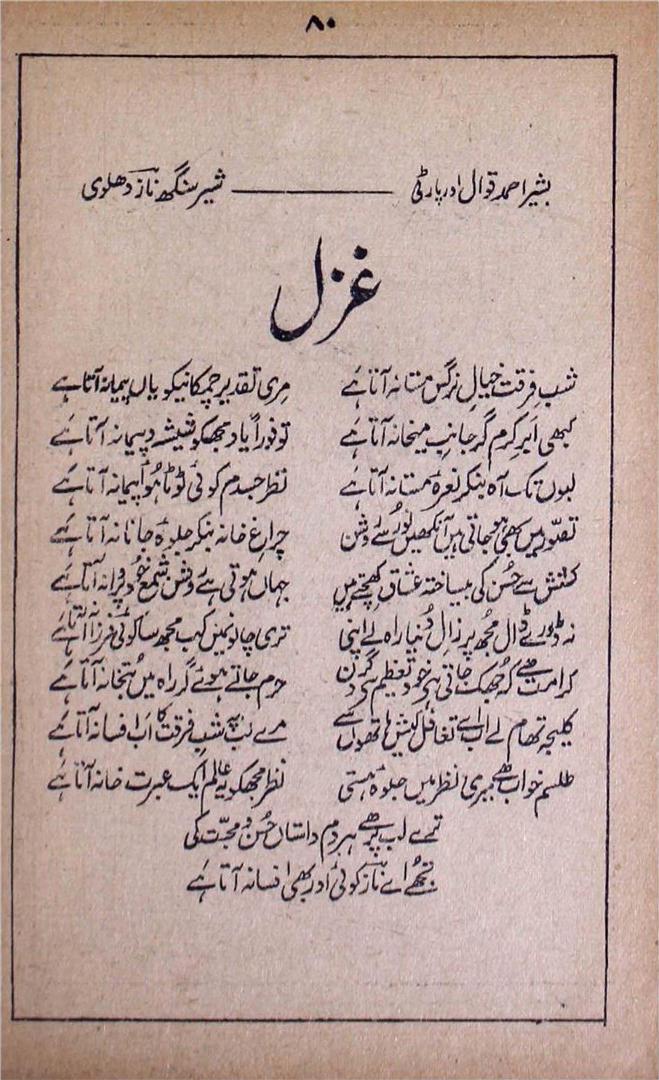 ۸۰
بشیر احمد قوال اور پارٹی ——— شیر سنگھ ناز دھلوی
غزل
شب فرقت خیالِ نرگس مستانہ آتا ہے مری تقدیر چمکانیکو یاں پیمانہ آتا ہے
کبھی ابرِ کرم گر جانبِ میخانہ آتا ہے تو فوراً یاد مجھکو شیشہ و پیمانہ آتا ہے
لبوں تک آہ بنکر نعرۂ مستانہ آتا ہے نظر جسدم کوئی ٹوٹا ہوا پیمانہ آتا ہے
تصوّر میں بھی ہوجاتی ہیں آنکھیں نور سے روشن چراغِ خانہ بنکر جلوۂ جانانہ آتا ہے
کشش سے حُسن کی بیساختہ عشاق کھچتے ہیں جہاں ہوتی ہے روشن شمع خود پروانہ آتا ہے
نہ ڈورے ڈال مجھ پر زالِ دُنیا راہ لے اپنی تری چالونمیں کب مجھ سا کوئی فرزانہ آتا ہے
کرامت ہے کہ جُھک جاتی ہے خود تعظیم کو گردن حرم جاتے ہوئے گر راہ میں بُتخانہ آتا ہے
کلیجہ تھام لے اب اے تغافل کیش ہاتھوں سے مرے لب پہ شبِ فرقت کا اب افسانہ آتا ہے
طلسم خواب ہے میری نظر میں جلوۂ ہستی نظر مجھکو یہ عالم ایک عبرت خانہ آتا ہے
ترے لب پر ہے ہر دم داستاں حُسن و محبّت کی
تجھے اے ناز کوئی اور بھی افسانہ آتا ہے